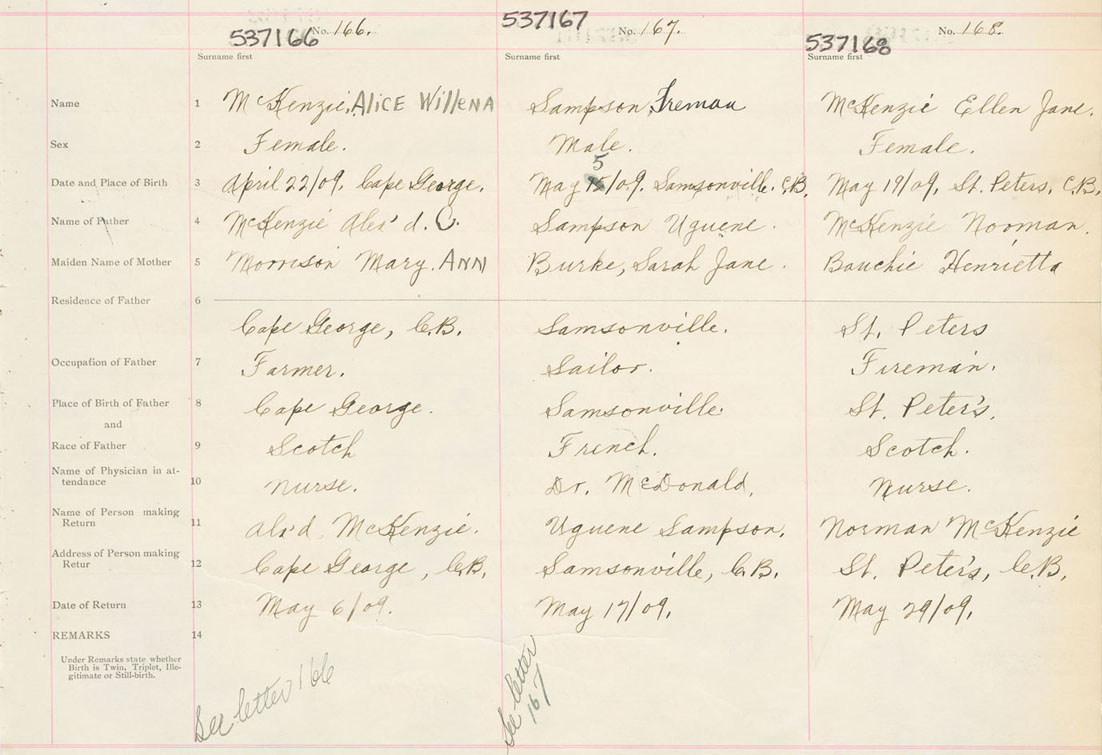 537166 No. 166. 537167 No. 167. 537168 No. 168.
Surname first Surname first Surname first
Name 1 McKenzie, ALICE WillENA Sampson, Freman McKenzie Ellen Jane.
Sex 2 Female. Male. Female.
Date and Place of Birth 3 April 22/09. Cape George. May 5/09. Samsonville. C.B. May 19/09, St. Peters, C.B.
Name of Father 4 McKenzie Alex'd. C. Sampson Uguene. McKenzie Norman.
Maiden Name of Mother 5 Morrison Mary. ANN Burke, Sarah Jane. Bouchie Henrietta
Residence of Father 6
Cape George, C.B. Samsonville. St. Peters
Occupation of Father 7 Farmer. Sailor. Fireman.
Place of Birth of Father 8 Cape George. Samsonville. St. Peter's.
and
Race of Father 9 Scotch French. Scotch.
Name of Physician in at-
tendance 10 Nurse. Dr. McDonald. Nurse.
Name of Person making
Return 11 Alex'd, McKenzie. Uguene Sampson. Norman McKenzie
Address of Person making
Retur 12 Cape George, C.B. Samsonville, C.B. St. Peter's, C.B.
Date of Return 13 May 6/09. May 17/09. May 29/09.
REMARKS 14
Under Remarks state whether
Birth is Twin, Triplet, Ille-
gitimate or Still-birth.
See letter 166
See letter
167